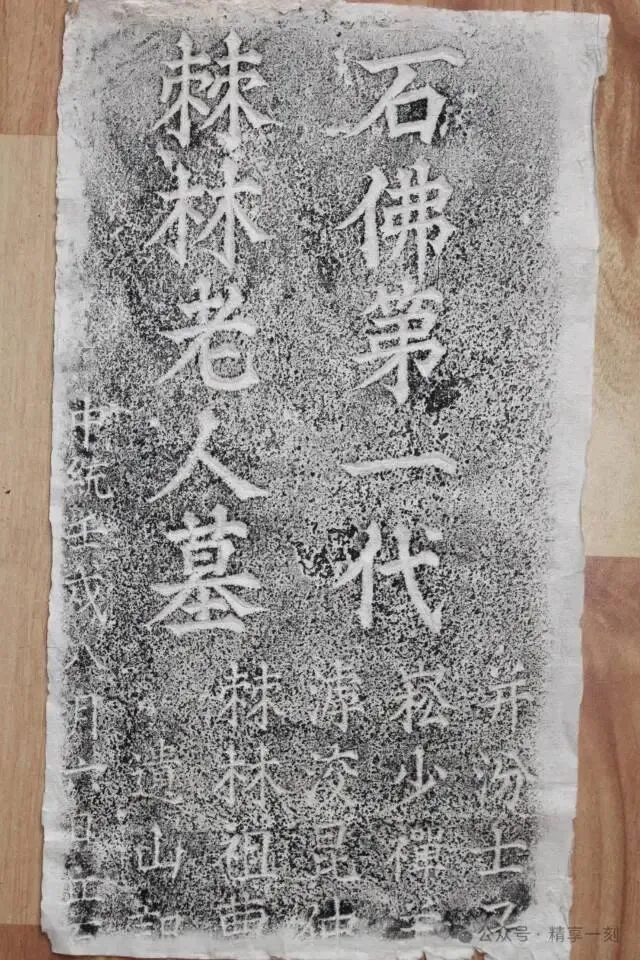 石佛第一代
棘林老人墓
并汾士
崧少禪
凌昆仲
棘林祖
遺山
中統壬戌八月
公众号·精享一刻